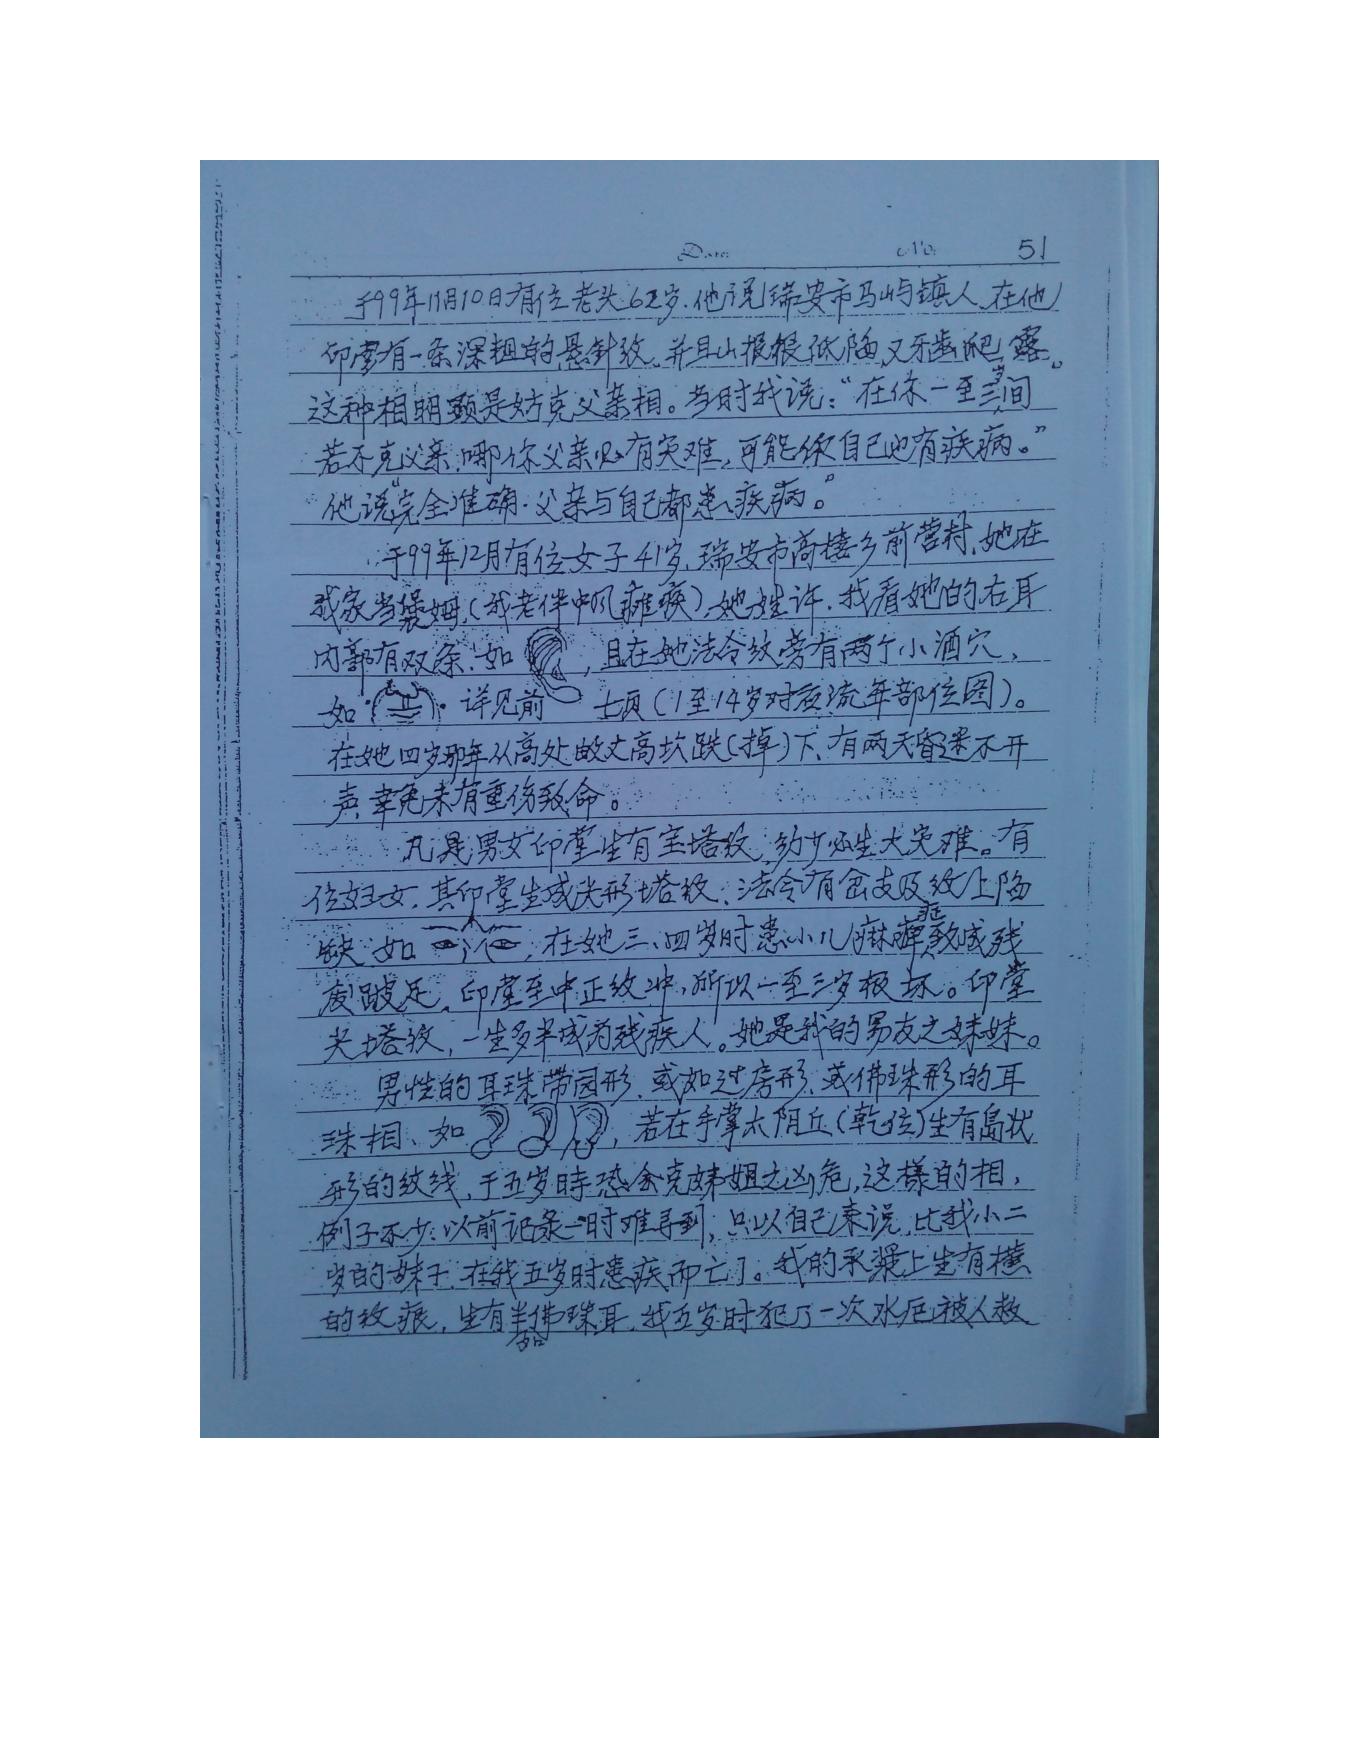 Date: No: 51
于99年11月10日有位老头62岁.他说瑞安市马屿镇人.在他
印堂有一条深粗的悬针纹、并且山根很低陷,又牙齿爬露。
这种相明显是妨克父亲相。当时我说:“在你一至三岁间
若不克父亲,哪你父亲必有灾难,可能你自己也有疾病。”
他说“完全准确.父亲与自己都患疾病。”
于99年12月有位女子41岁,瑞安市高楼乡前营村,她在
我家当褓姆,(我老伴中风瘫痪),她姓许.我看她的右耳
内部有双条、如 ,且在她法令纹旁有两个小酒穴、
如 详见前 七页(1至14岁对应流年部位图)。
在她四岁那年从高处 丈高坎跌(掉)下、有两天昏迷不开
声,幸免未有重伤致命。
凡是男女印堂生有宝塔纹,幼少必生大灾难。有
位妇女.其印堂生成尖形塔纹、法令有岔支及纹上陷
缺.如 ,在她三、四岁时患小儿麻痹症致成残
废跛足.印堂至中正纹冲,所以一至三岁极坏。印堂
尖塔纹,一生多半成为残疾人。她是我的男友之妹妹。
男性的耳珠带园形、或如过房形、或佛珠形的耳
珠相、如 ,若在手掌太阴丘(乾位)生有岛状
形的纹线,于五岁時恐会克妹姐之凶危,这樣的相,
例子不少:以前记录一时难寻到,只以自己来说,比我小二
岁的妹子,在我五岁时患疾而亡了。我的承浆上生有横
的纹痕,生有如半佛珠耳,我五岁时犯了一次水厄被人救